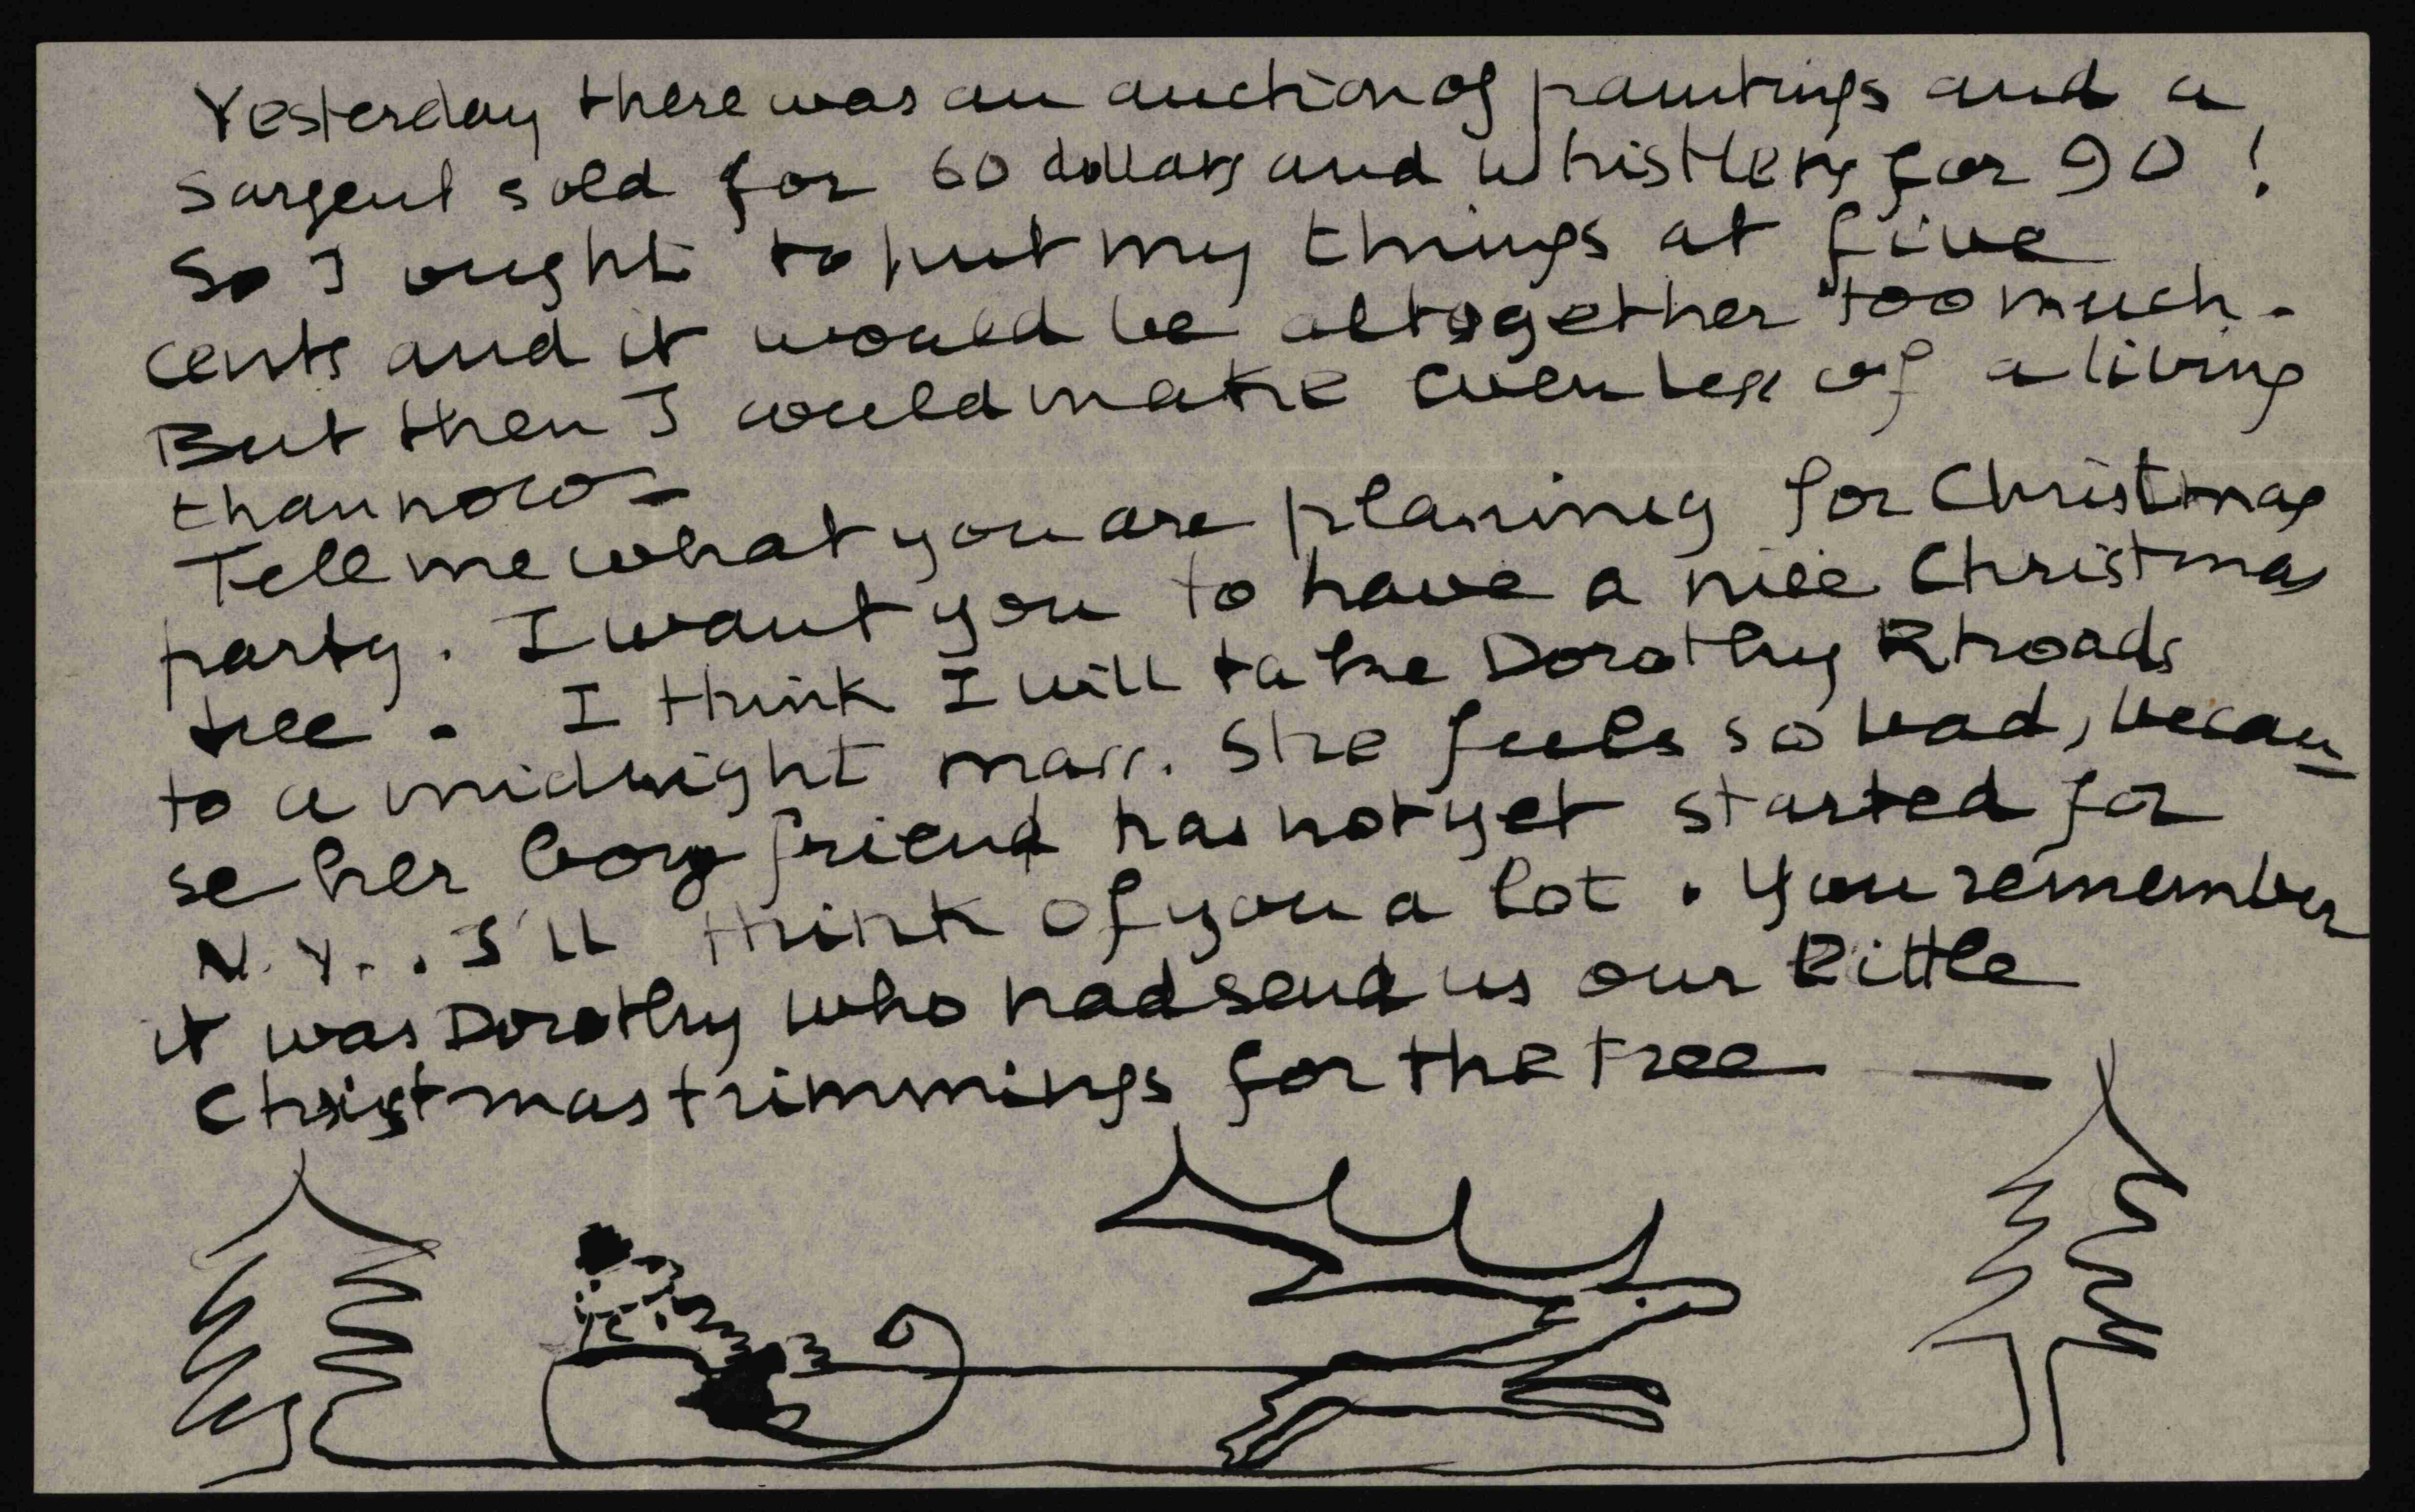 Yesterday there was an auction of paintings and a
Sargent sold for 60 dollars and Whistlers for 90!
So I ought to put my things at five
cents and it would be altogether too much.
But then I would make even less of a living
than now—
Tell me what you are planing for Christmas
party. I want you to have a nice Christmas
tree. I think I will take Dorothy Rhoads
to a midnight mass. She feels so bad, becau
se her boy friend has not yet started for
N.Y.. I'll think of you a lot. You remember
it was Dorothy who had send us our little
Christmas trimmings for the tree —